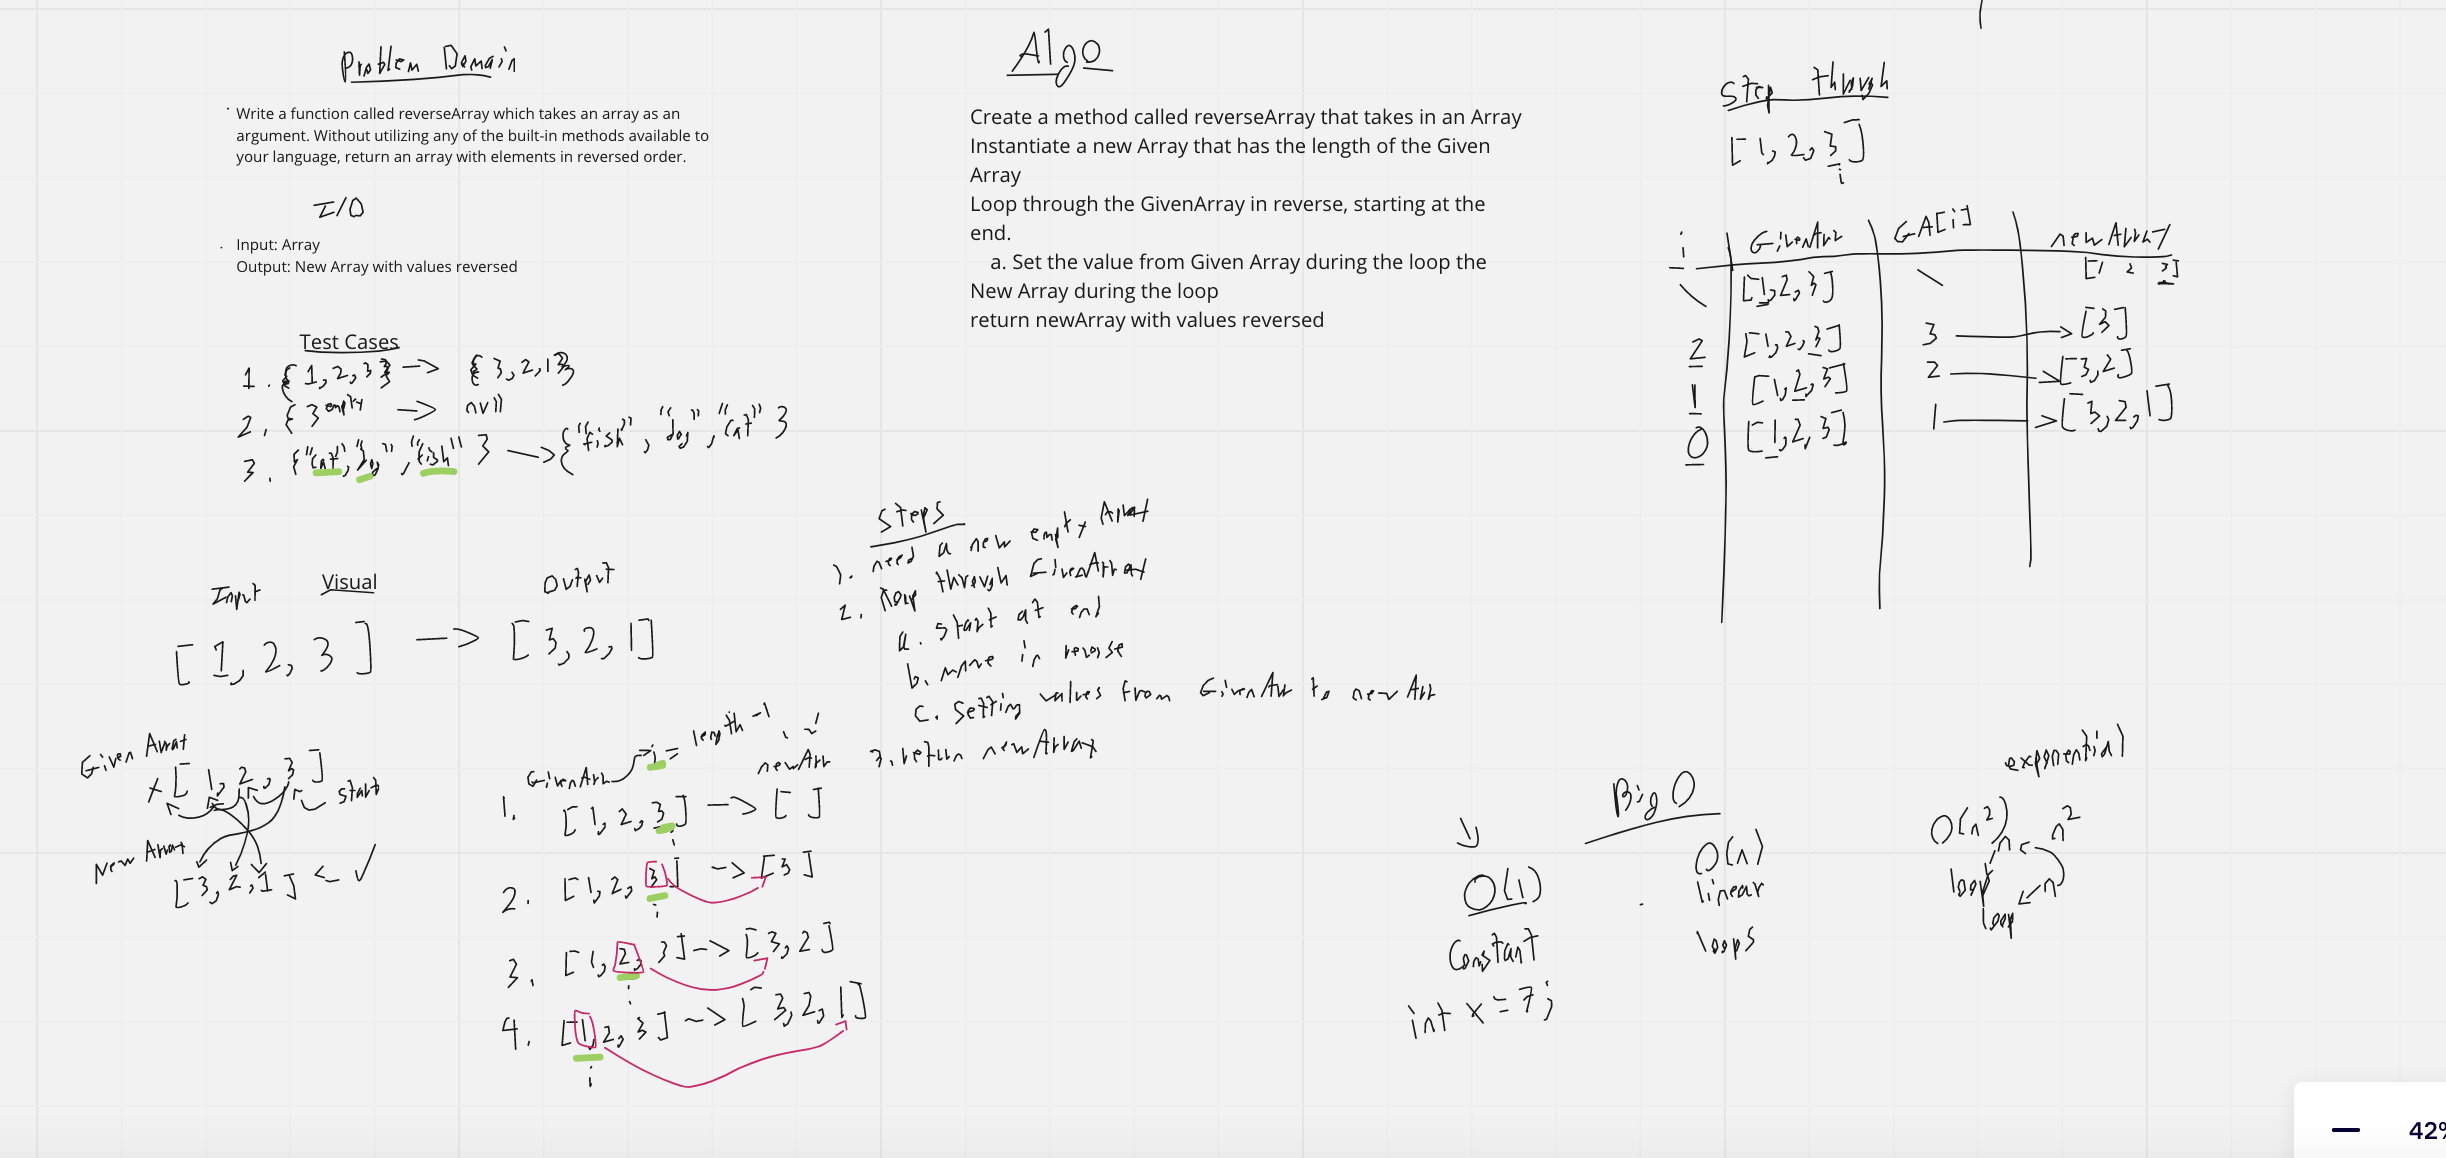 Problem Domain
Write a function called reverseArray which takes an array as an
argument. Without utilizing any of the built-in methods available to
your language, return an array with elements in reversed order.
I/O
Input: Array
Output: New Array with values reversed
Test Cases
1. { 1,2,3 } -> { 3,2,1 }
2. { } empty -> null
3. {"cat","dog","fish" } -> {"fish", "dog","cat" }
Input Visual Output
[ 1, 2, 3 ] -> [ 3, 2, 1]
Given Array
x [ 1, 2, 3 ]
start
New Array
[3, 2, 1 ] <- ✓
GivenArr i = length -1
newArr
1. [ 1, 2, 3 ] -> [ ]
i
2. [ 1, 2, 3 ] -> [ 3 ]
i
3. [ 1, 2, 3 ] -> [ 3, 2 ]
i
4. [ 1, 2, 3 ] -> [ 3, 2, 1 ]
i
Algo
Create a method called reverseArray that takes in an Array
Instantiate a new Array that has the length of the Given
Array
Loop through the GivenArray in reverse, starting at the
end.
a. Set the value from Given Array during the loop the
New Array during the loop
return newArray with values reversed
Steps
1. need a new empty Array
2. loop through GivenArray
a. start at end
b. move in reverse
c. Setting values from GivenArr to newArr
3. return newArray
Step through
[ 1, 2, 3 ]
i
i GivenArr GA[i] newArray
\ [1,2,3] \ [1 2 3]
2 [1,2,3] 3 -> [3]
1 [1,2,3] 2 -> [3,2]
0 [1,2,3] 1 -> [3,2,1]
Big O
O(1)
Constant
int x = 7;
O(n)
linear
loops
exponential
O(n²)
n n²
loop n
loop
42%